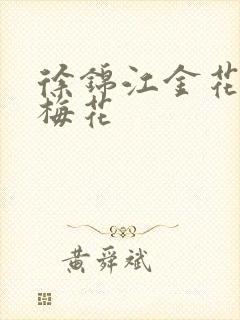 徐錦江金花
梅花
黃舜斌